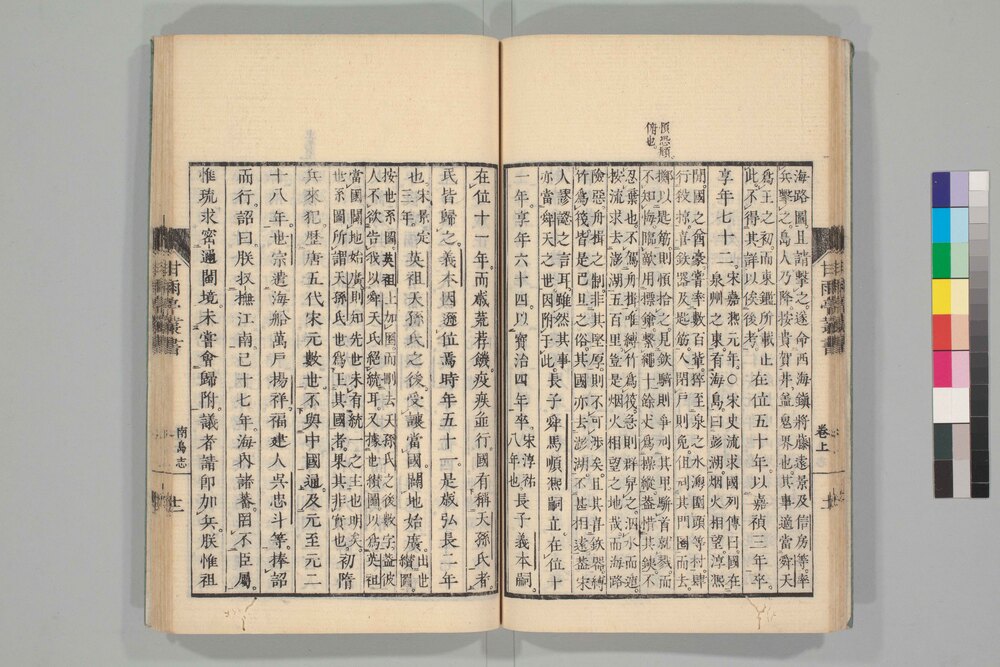 頂恐順
脩也
海路圖且請擊之遂命西海鎭將藤遠景及信房等率
兵擊之島人乃降按貴賀井盖鬼界也其事適當舜天
爲王之初而東鑑所載止
此不得其詳以俟後考在位五十年以嘉禎三年卒
享年七十二宋嘉熙元年〇宋史流求國列傳曰國在
泉州之東有海島曰彭湖烟火相望淳熙
間國之酋豪嘗率數百輩猝至泉之水澳圍頭等村肆
行殺掠喜鉄器及匙筯人閉戶則免但刓其門圈而去
擲以匙筯則頫拾之見鉄騎則爭刓其甲騎首就戮而
不知悔臨敵用摽鎗繫繩十餘丈爲操縱盖惜其鉄不
忍棄也不駕舟楫惟縛竹爲筏急則群舁之泅水而遁
按流求去澎湖五百里豈是烟火相望之地哉而海路
險惡舟楫之制非其堅厚則不可涉矣且其喜鉄器縛
竹爲筏皆是巴旦之俗其國亦去彭湖不甚相遠盖宋
人謬證之言耳雖然其事
亦當舜天之世因附于此長子舜馬順熈嗣立在位十
一年享年六十四以寳治四年卒宋淳祐
八年也長子義本嗣
在位十一年而歲荒荐饑疫疾並行國有稱天孫氏者
氏皆歸之義本因遜位焉時年五十四是歲弘長二年
也宋景定
三年英祖天孫氏之後受讓當國闢地始廣出世
纘圖
按世系圖英祖上加一圏而刪去天孫氏之後數字盖彼
人不欲告我以舜天氏絕統耳又據世纘圖以爲英祖
當國闢地始廣則知先世未有統一之主也明矣
世系圖所謂天孫氏世爲王其國者果其非實也初隋
兵來犯歷唐五代宋元數世不與中國通及元至元二
十八年也宗遣海船萬戶揚祥福建人吳忠斗等捧詔
而行詔曰朕収撫江南已十七年海內諸番罔不臣屬
惟琉求密邇閩境未嘗會歸附議者請卽加兵朕惟祖
甘雨亭叢書
卷上
甘雨亭叢書
南島志
十一